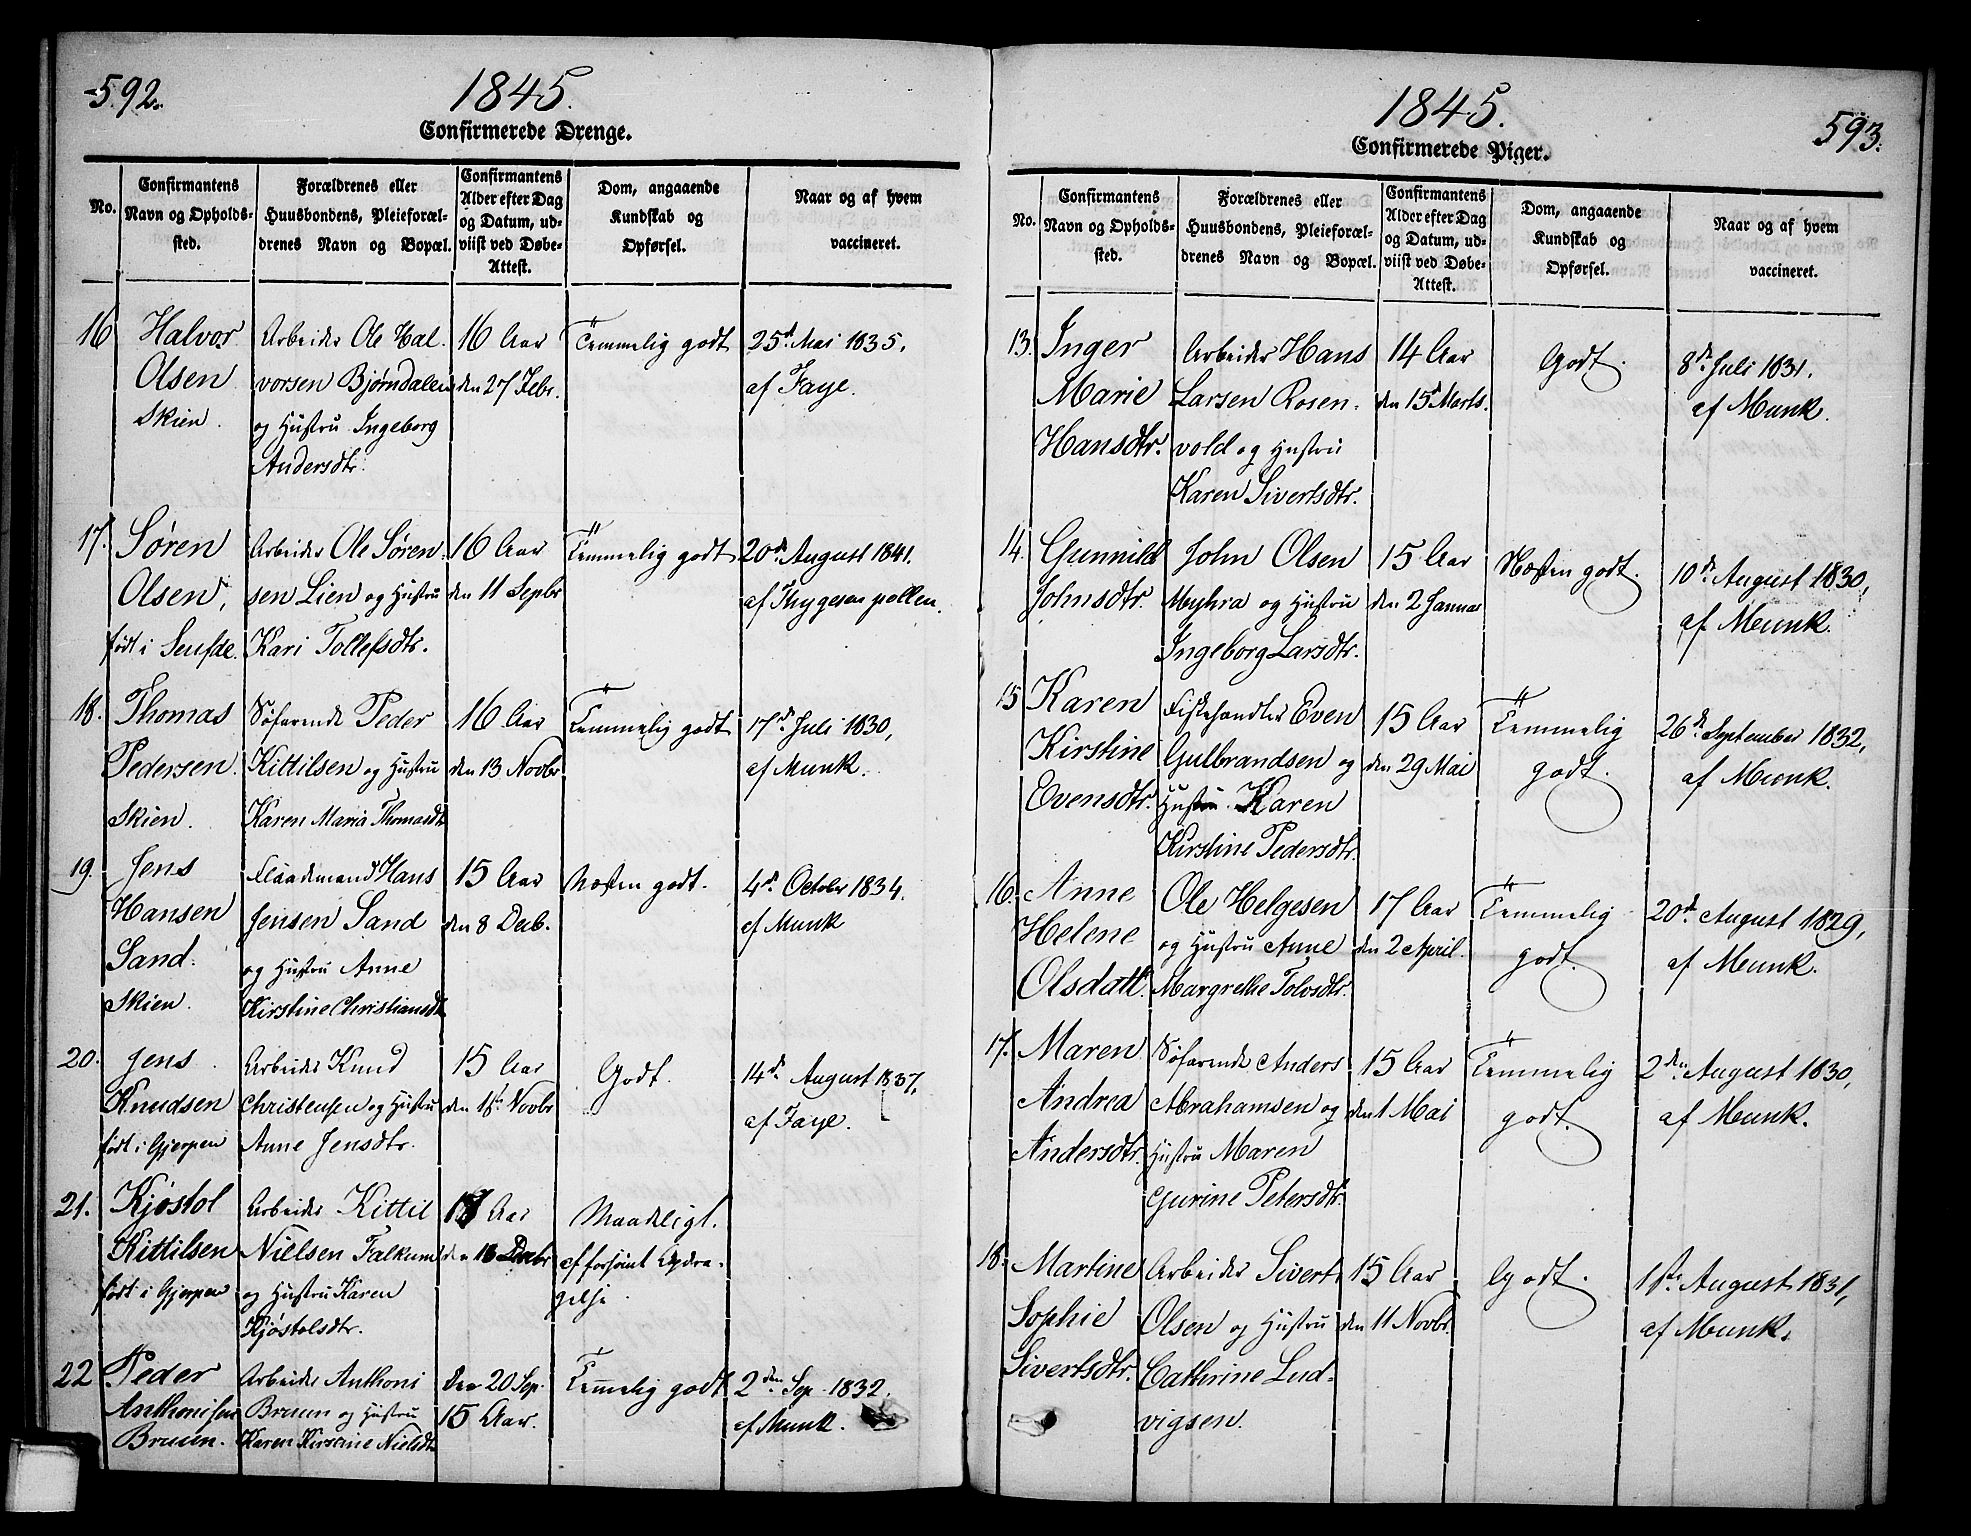 592.
1845.
Confirmerede Drenge.
No.
Confirmantens
Navn og Opholds-
sted.
Forældrenes eller
Huusbondens, Pleieforæl-
drenes Navn og Bopæl.
Confirmantens
Alder efter Dag
og Datum, ud-
viist ved Døbe-
Attest.
Dom, angaaende
Kundskab og
Opførsel.
Naar og af hvem
vaccineret.
16
Halvor
Olsen
Skien.
Arbeider Ole Hal.
vorsen Bjørndalen
og Hustru Ingeborg
Andersdtr.
16 Aar
den 27 Febr.
Temmelig godt
25d. Mai 1835.
af Faye.
17.
Søren
Olsen,
født i
Arbeider Ole Søren.
sen Lien og Hustru
Kari Tollefsdtr.
16 Aar
den 11 Sepbr
Temmelig godt
20de August 1841.
af Thygeson pollen.
18.
Thomas
Pedersen.
Skien.
Søfarende Peder
Kittilsen og Hustru
Karen Maria Thomasdtr
16 Aar
den 13 Novbr
Temmelig godt
17de Juli 1830,
af Munk.
19.
Jens
Hansen
Sand.
Skien.
Flaademand Hans
Jensen Sand
og Hustru Anne
Kirstine Christiansdtr
15 Aar
den 8 Decb.
Næsten godt.
4d. October 1834.
af Munk
20.
Jens
Knudsen
født i Gjerpen
Arbeider Knud
Christensen og Hustru
Anne Jensdtr.
15 Aar
den Novbr
Godt.
14d. August 1837,
af Faye.
21.
Kjøstol
Kittilsen
født i Gjerpen
Arbeider Kittil
Nielsen Falkum
og Hustru Karen
Kjøstolsdtr.
Aar
den Decbr
Maadeligt.
af forsømt Opdra-
gelse.
22
Peder
Anthonisen
Bruun.
Arbeider Anthoni
Bruun og Hustru
Karen Kirstine Nielsdtr
den 20 Sep.
15 Aar.
Temelig godt
2den Sep. 1832.
af Munk.
1845.
593.
Confirmerede Piger.
No.
Confirmantens
Navn og Opholds-
sted.
Forældrenes eller
Huusbondens, Pleieforæl-
drenes Navn og Bopæl.
Confirmantens
Alder efter Dag
og Datum, ud-
viist ved Døbe-
Attest.
Dom, angaaende
Kundskab og
Opførsel.
Naar og af hvem
vaccineret.
13.
Inger
Marie
Hansdtr.
Arbeider Hans
Larsen Rosen.
vold og Hustru
Karen Sivertsdtr.
14 Aar
den 15 Marts.
Godt.
8de Juli 1831.
af Munk.
14.
Gunnild
Johnsdtr.
John Olsen
Myhra og Hustru
Ingeborg Larsdtr.
15 Aar
den 2 Januar
Næsten godt.
10de August 1830,
af Munk.
15
Karen
Kirstine
Evensdtr.
Fiskehandler Even
Gulbrandsen og
Hustru Karen
Kirstine Pedersdtr.
15 Aar
den 29 Mai
Temmelig
godt.
26de September 1832,
af Munk.
16.
Anne
Helene
Olsdatt.
Ole Helgesen
og Hustru Anne
Margrethe Tolvsdtr.
17 Aar
den 2 April.
Temmelig
godt.
20de August 1829,
af Munk.
17.
Maren
Andrea
Andersdtr.
Søfarende Anders
Abrahamsen og
Hustru Maren
Gurine Petersdtr
15 Aar
den 1 Mai
Temmelig
godt.
2den August 1830,
af Munk.
18.
Martine
Sophie
Sivertsdtr.
Arbeider Sivert
Olsen og Hustru
Cathrine Lud-
vigsen.
15 Aar
den 11 Novbr.
Godt.
August 1831,
af Munk.